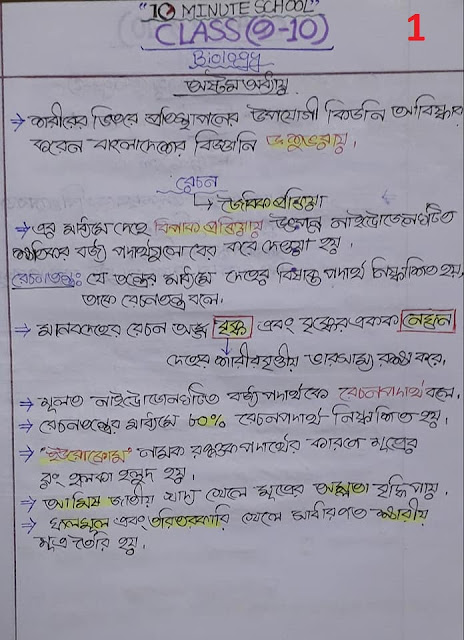 "10 MINUTE SCHOOL"
1
CLASS (9-10)
Biology
অষ্টম অধ্যায়
→ শরীরের ভিতরে প্রতিস্থাপনের উপযোগী কিডনি আবিষ্কার
করেন বাংলাদেশের বিজ্ঞানি শুভরায়।
রেচন
↳ জৈবিক প্রক্রিয়া
→ এর মাধ্যমে দেহে বিপাক প্রক্রিয়ায় উৎপন্ন নাইট্রোজেনঘটিত
ক্ষতিকর বর্জ্য পদার্থগুলো বের করে দেওয়া হয়।
রেচনতন্ত্রঃ যে তন্ত্রের মাধ্যমে দেহের বিষাক্ত পদার্থ নিষ্কাশিত হয়,
তাকে রেচনতন্ত্র বলে।
→ মানবদেহের রেচন অঙ্গ বৃক্ক এবং বৃক্কের একক নেফ্রন
দেহের শারীরবৃত্তীয় ভারসাম্য রক্ষা করে।
→ মূলত নাইট্রোজেনঘটিত বর্জ্য পদার্থকে রেচনপদার্থ বলে।
→ রেচনতন্ত্রের মাধ্যমে ৮০% রেচনপদার্থ নিষ্কাশিত হয়।
→ "ইউরোক্রোম" নামক রঞ্জক পদার্থের কারণে মূত্রের
রং হালকা হলুদ হয়।
→ আমিষ জাতীয় খাদ্য খেলে মূত্রের অম্লতা বৃদ্ধি পায়।
→ ফলমূল এবং তরিতরকারি খেলে সাধারণত ক্ষারীয়
মূত্র তৈরি হয়।